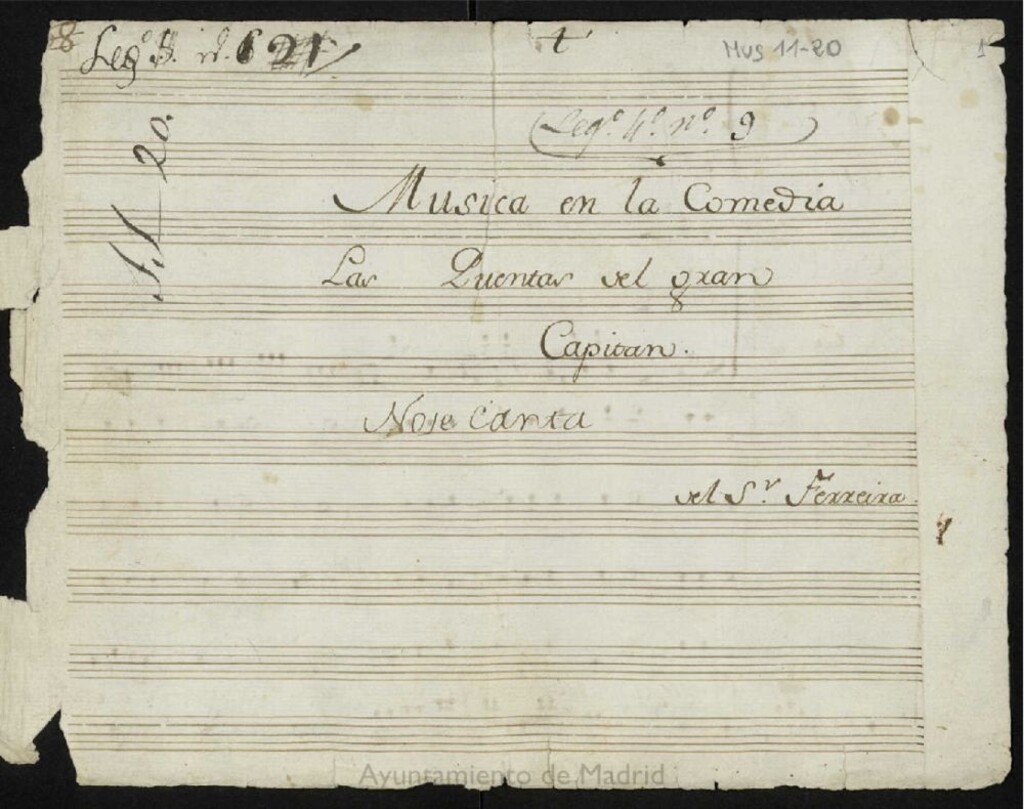 Leg.º 5. n.º 621
t
Mus 11-20
1
Leg.º 4.º n.º 9
20.
Musica en la Comedia
Las Quentas del gran
Capitan.
No se Canta
del S.r Ferreira.
Ayuntamiento de Madrid